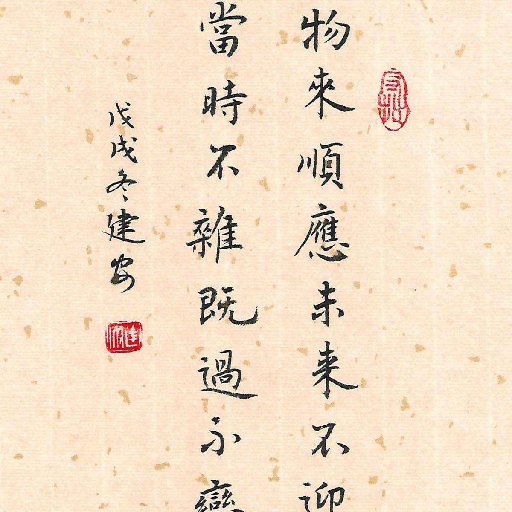 物來順應未来不迎
當時不雜既過不
戊戌冬建安